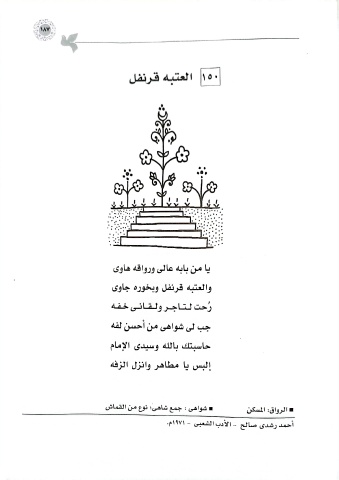 ١٨٧
١٥٠ العتبه قرنفل
يا من بابه عالى ورواقه هاوى
والعتبه قرنفل وبخوره جاوى
رُحت لتاجر ولقانى خفه
جب لى شواهى من أحسن لفه
حاسبتك بالله وسيدى الإمام
إلبس يا مطاهر وانزل الزفه
■ الرواق: المسكن ■ شواهى: جمع شاهى: نوع من القماش
أحمد رشدى صالح - الأدب الشعبى - ١٩٧١م.